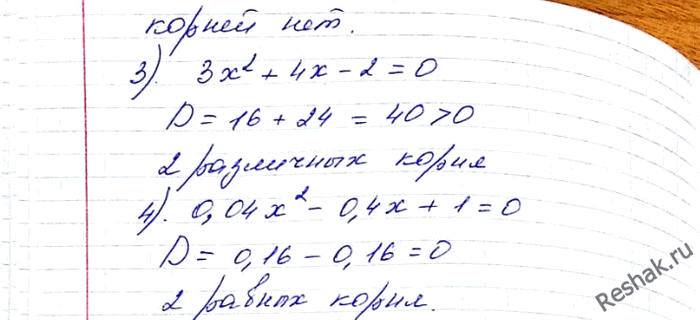 корней нет.
3). 3x² + 4x - 2 = 0
D = 16 + 24 = 40 > 0
2 различных корня
4). 0,04x² - 0,4x + 1 = 0
D = 0,16 - 0,16 = 0
2 равных корня.
Reshak.ru